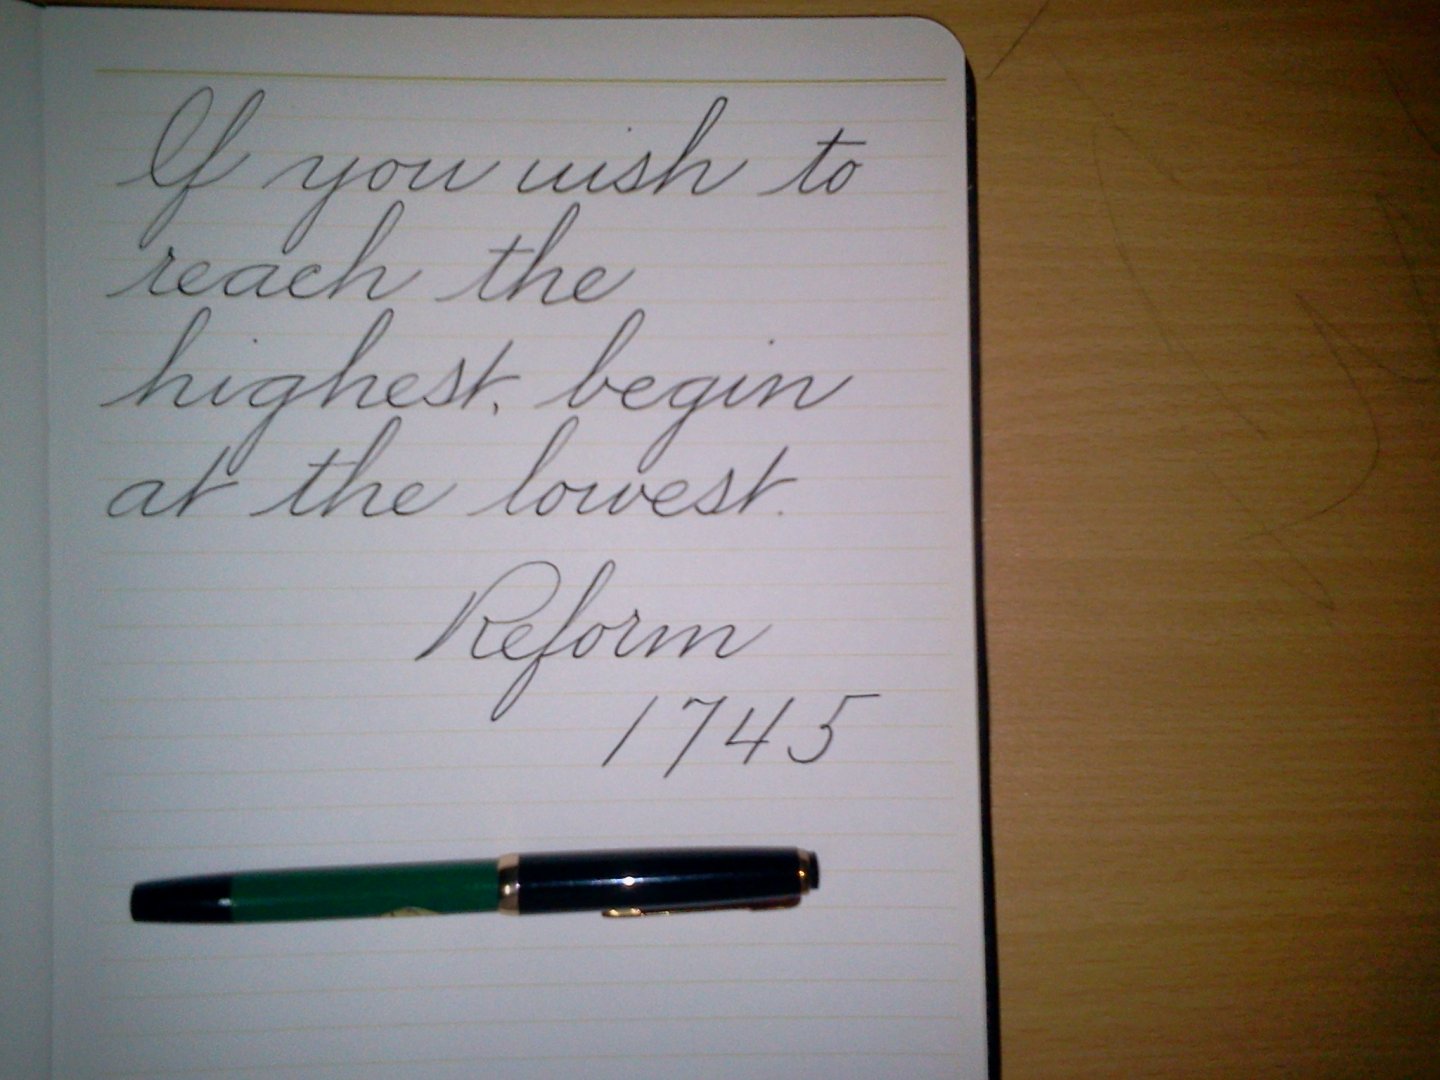 If you wish to
reach the
highest, begin
at the lowest.
Reform
1745